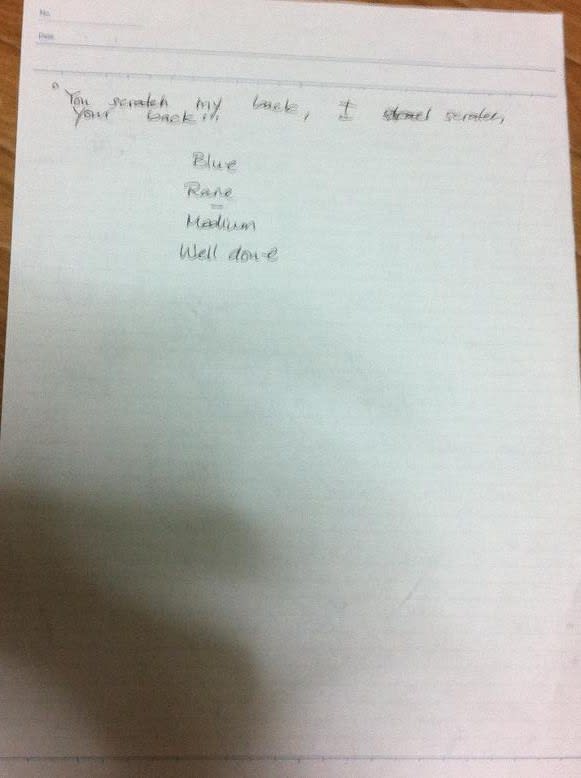 No.
Date
"You scratch my back, I scratch
your back"
Blue
Rare
Medium
Well done